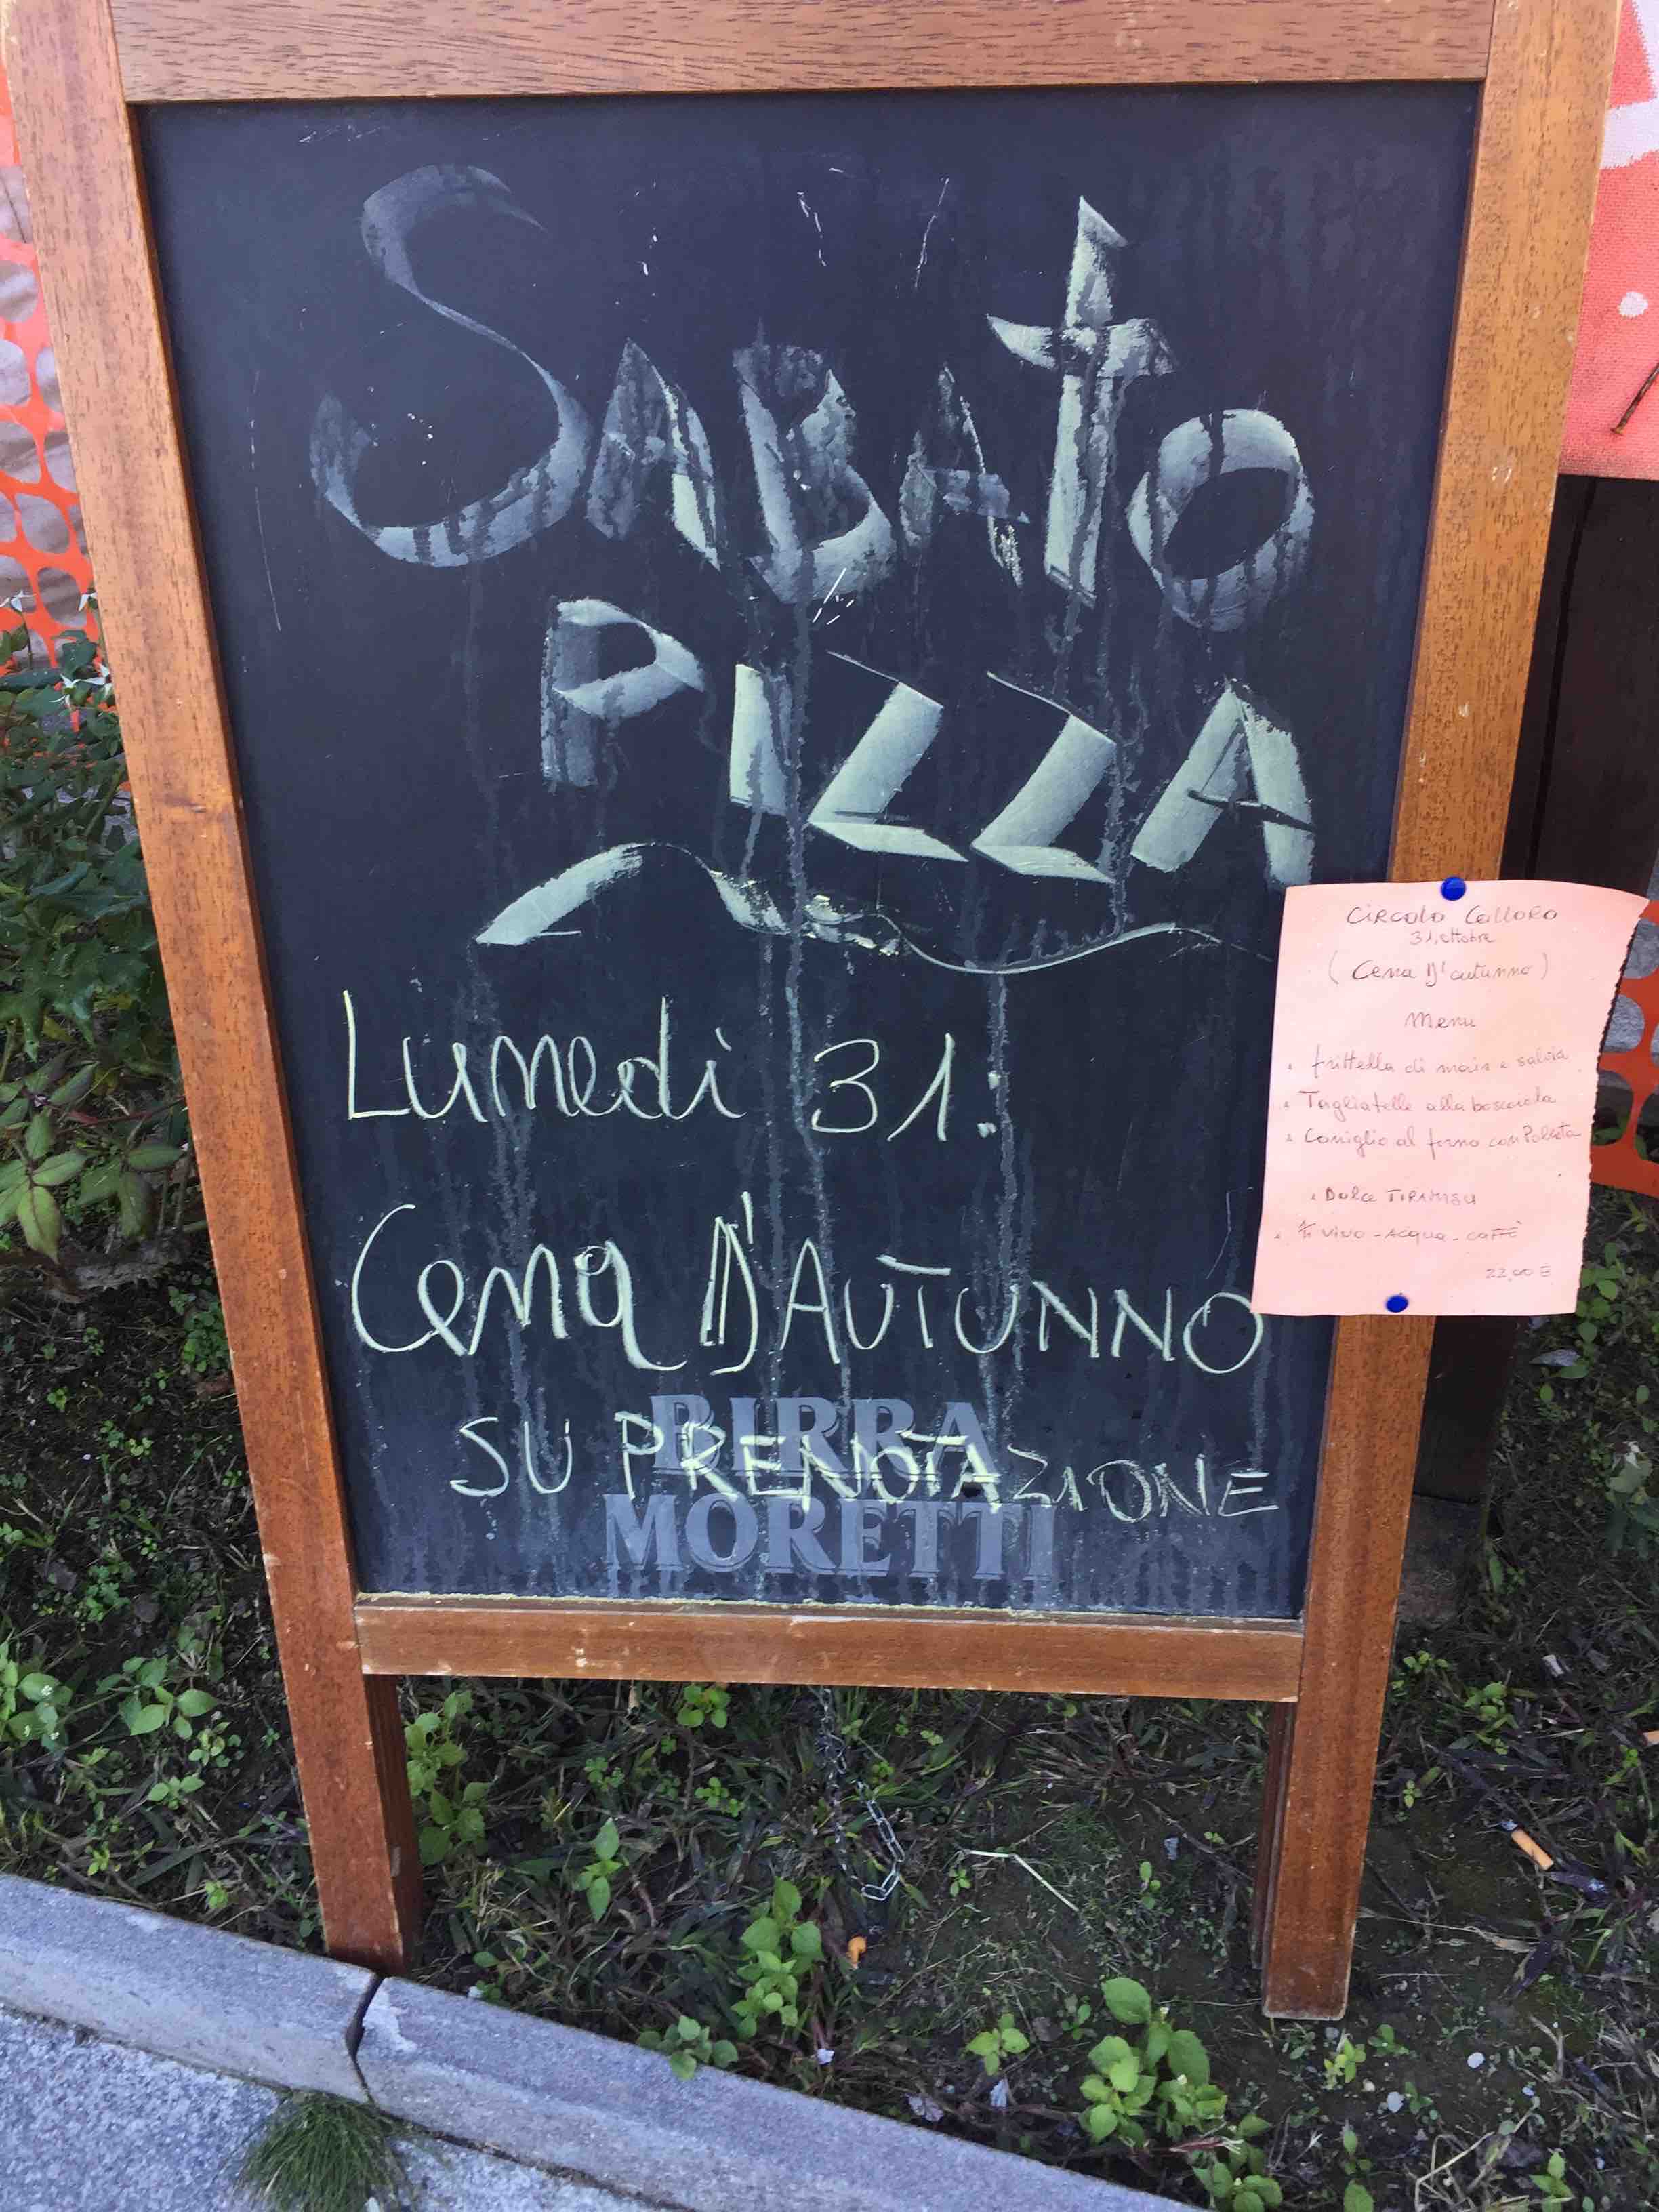 SABATO
PIZZA
Lunedì 31:
Cena D'AUTUNNO
SU PRENOTAZIONE
BIRRA
MORETTI
CIRCOLO
31, ottobre
(Cena D'autunno)
Menu
frittella di mais e salvia
Tagliatelle alla boscaiola
Coniglio al forno con Polenta
Dolce TIRAMISU
VINO - Acqua - CAFFÈ
22,00 E